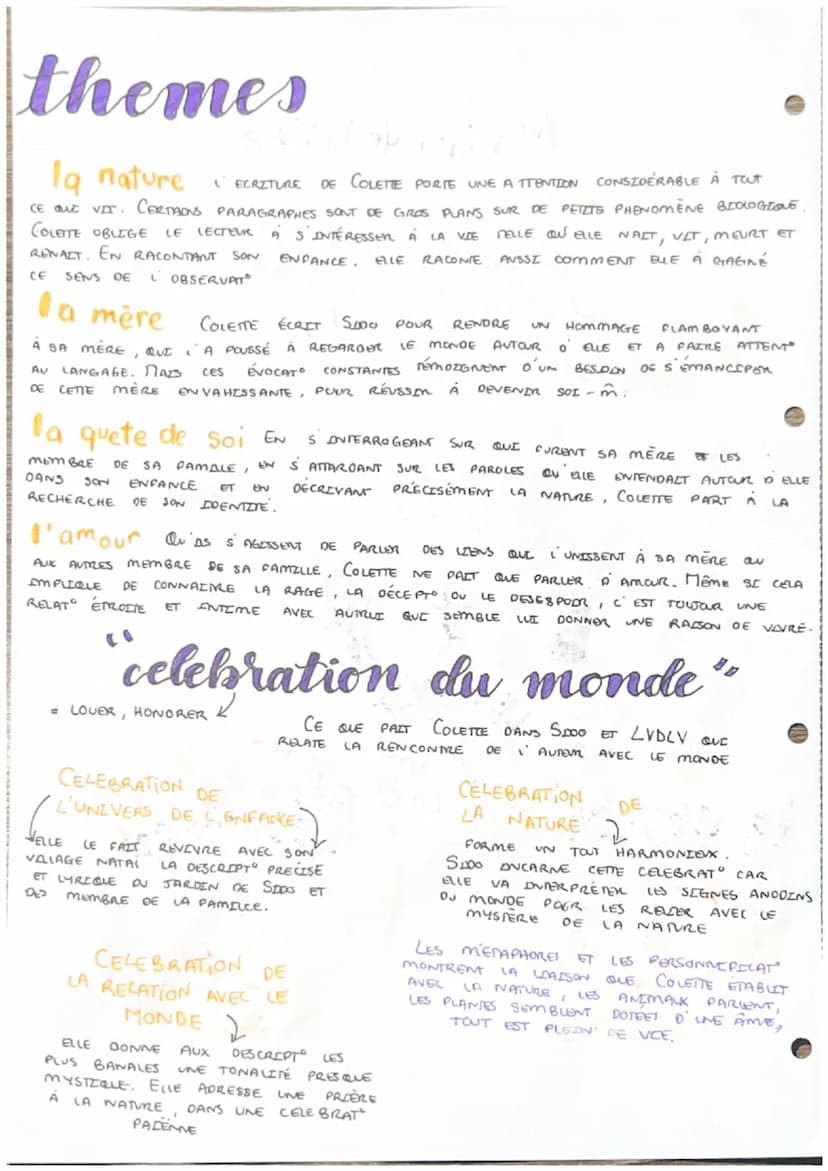 themes
la nature L'ECRITURE DE COLETTE PORTE UNE ATTENTION CONSIDÉRABLE À TOUT
CE QUI VIT. CERTAINS PARAGRAPHES SONT DE GROS PLANS SUR DE PETITS PHENOMÈNE BIOLOGIQUE.
COLETTE OBLIGE LE LECTEUR À S'INTÉRESSER À LA VIE TELLE QU'ELLE NAIT, VIT, MEURT ET
RENAIT. EN RACONTANT SON ENFANCE, ELLE RACONTE AUSSI COMMENT ELLE À GAGNÉ
CE SENS DE L'OBSERVAT°
la mère COLETTE ÉCRIT SIDO POUR RENDRE UN HOMMAGE FLAMBOYANT
À SA MÈRE, QUI L'A POUSSÉ À REGARDER LE MONDE AUTOUR D'ELLE ET A FAIRE ATTENT°
AU LANGAGE. MAIS CES ÉVOCAT° CONSTANTES TÉMOIGNENT D'UN BESOIN DE S'ÉMANCIPER
DE CETTE MÈRE ENVAHISSANTE, POUR RÉUSSIR À DEVENIR SOI-M̂.
la quete de soi EN S'INTERROGEANT SUR QUI FURENT SA MÈRE ET LES
MEMBRE DE SA FAMILLE, EN S'ATTARDANT SUR LES PAROLES QU'ELLE ENTENDAIT AUTOUR D'ELLE
DANS SON ENFANCE ET EN DÉCRIVANT PRÉCISÉMENT LA NATURE, COLETTE PART À LA
RECHERCHE DE SON IDENTITÉ.
l'amour QU'ILS S'AGISSENT DE PARLER DES LIENS QUI L'UNISSENT À SA MÈRE OU
AUX AUTRES MEMBRE DE SA FAMILLE, COLETTE NE FAIT QUE PARLER D'AMOUR. MÊME SI CELA
IMPLIQUE DE CONNAITRE LA RAGE, LA DÉCEPT° OU LE DESESPOIR, C'EST TOUJOUR UNE
RELAT° ÉTROITE ET INTIME AVEC AUTRUI QUI SEMBLE LUI DONNER UNE RAISON DE VIVRE.
"celebration du monde"
= LOUER, HONORER
CE QUE FAIT COLETTE DANS SIDO ET LVDLV QUI
RELATE LA RENCONTRE DE L'AUTEUR AVEC LE MONDE
CELEBRATION DE
L'UNIVERS DE L'ENFANCE
ELLE LE FAIT REVIVRE AVEC SON
VILLAGE NATAL LA DESCRIPT° PRÉCISE
ET LYRIQUE DU JARDIN DE SIDO ET
DES MEMBRE DE LA FAMILLE.
CÉLEBRATION DE
LA NATURE
FORME UN TOUT HARMONIEUX.
SIDO INCARNE CETTE CELEBRAT° CAR
ELLE VA INTERPRÉTER LES SIGNES ANODINS
DU MONDE POUR LES RELIER AVEC LE
MYSTÈRE DE LA NATURE
LES MÉTAPHORES ET LES PERSONNIFICAT°
MONTRENT LA LIAISON QUE COLETTE ÉTABLIT
AVEC LA NATURE, LES ANIMAUX PARLENT,
LES PLANTES SEMBLENT DOTÉES D'UNE ÂME,
TOUT EST PLEIN DE VIE.
CELEBRATION DE
LA RELATION AVEC LE
MONDE
ELLE DONNE AUX DESCRIPT° LES
PLUS BANALES UNE TONALITÉ PRESQUE
MYSTIQUE. ELLE ADRESSE UNE PRIÈRE
À LA NATURE, DANS UNE CELEBRAT°
PAÏENNE